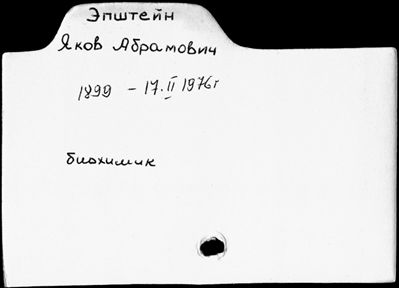 Эпштейн
Яков Абрамович
1899 – 17.II 1976 г
биохимик